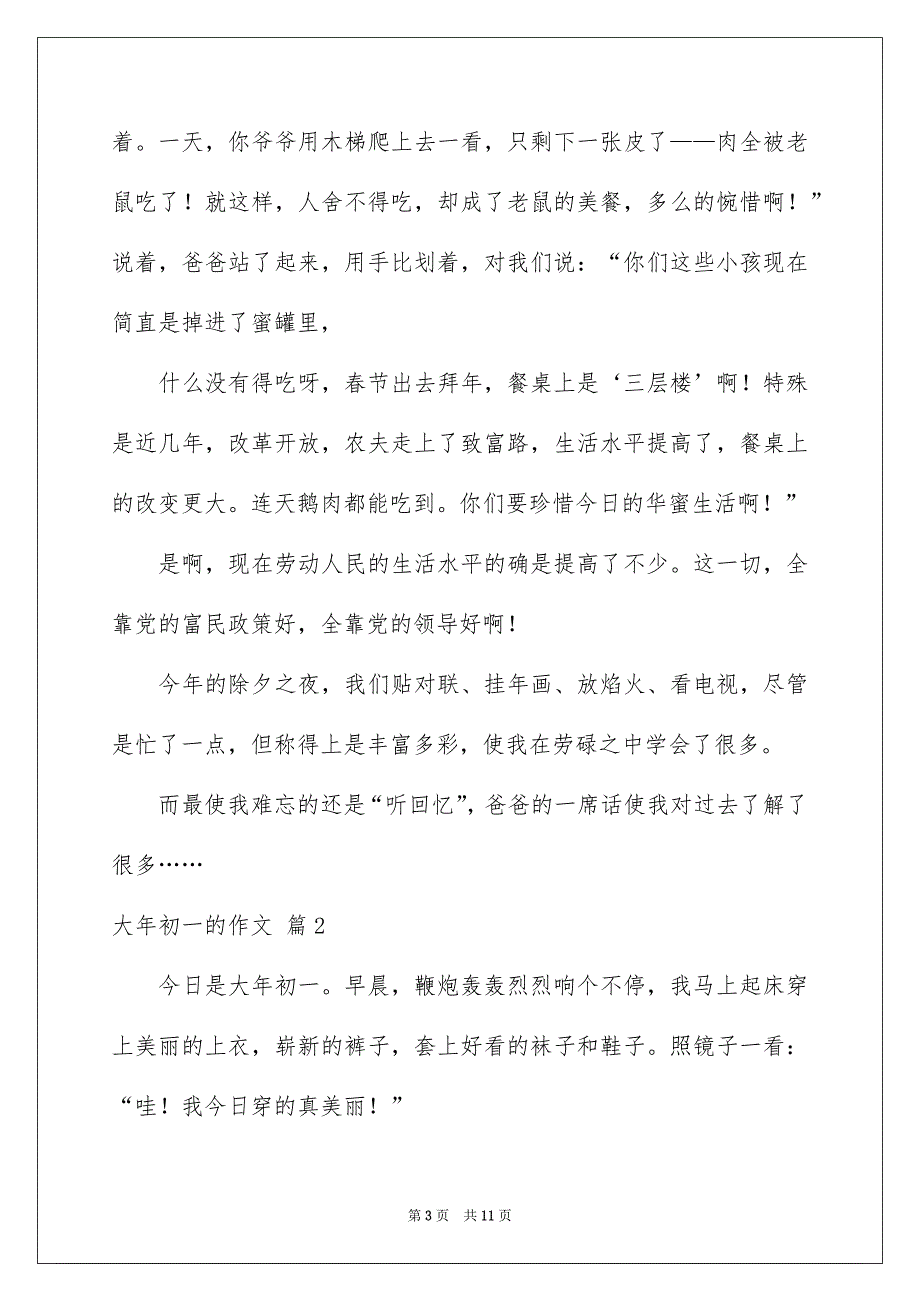 着。一天，你爷爷用木梯爬上去一看，只剩下一张皮了——肉全被老
鼠吃了！就这样，人舍不得吃，却成了老鼠的美餐，多么的惋惜啊！”
说着，爸爸站了起来，用手比划着，对我们说：“你们这些小孩现在
简直是掉进了蜜罐里，
什么没有得吃呀，春节出去拜年，餐桌上是‘三层楼’啊！特殊
是近几年，改革开放，农夫走上了致富路，生活水平提高了，餐桌上
的改变更大。连天鹅肉都能吃到。你们要珍惜今日的华蜜生活啊！”
是啊，现在劳动人民的生活水平的确是提高了不少。这一切，全
靠党的富民政策好，全靠党的领导好啊！
今年的除夕之夜，我们贴对联、挂年画、放焰火、看电视，尽管
是忙了一点，但称得上是丰富多彩，使我在劳碌之中学会了很多。
而最使我难忘的还是“听回忆”，爸爸的一席话使我对过去了解了
很多……
大年初一的作文 篇2
今日是大年初一。早晨，鞭炮轰轰烈烈响个不停，我马上起床穿
上美丽的上衣，崭新的裤子，套上好看的袜子和鞋子。照镜子一看：
“哇！我今日穿的真美丽！”
第 3 页 共 11 页